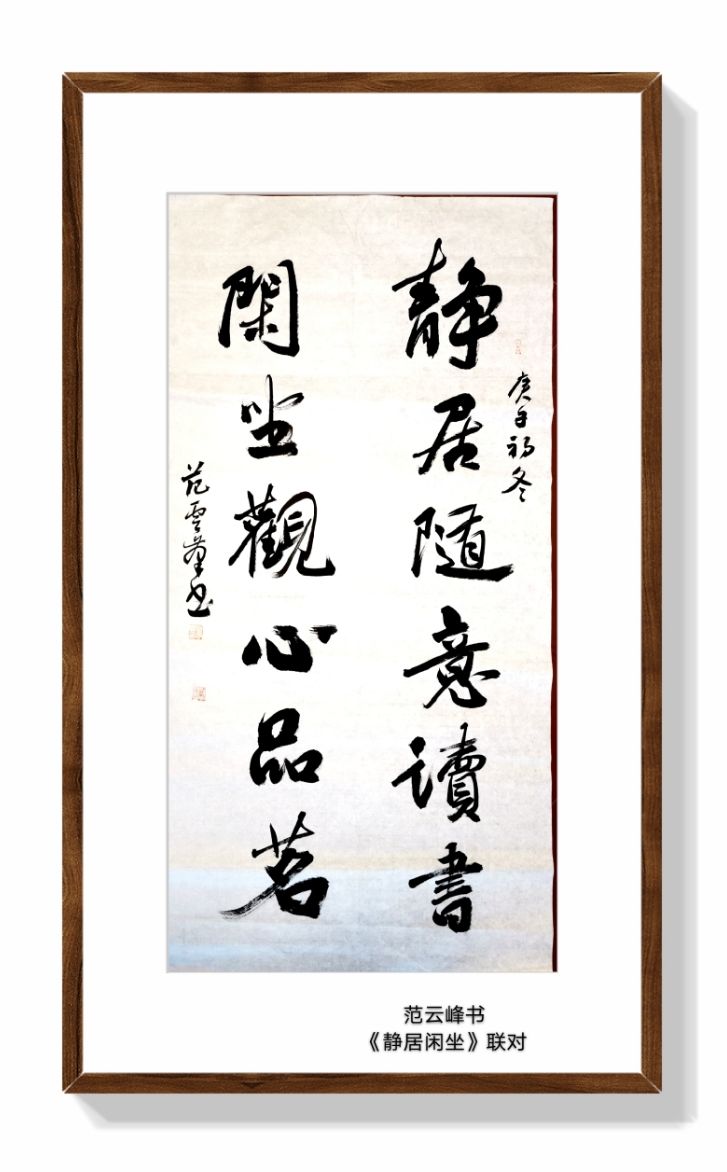 静居隨意讀書
庚子初冬
閑坐觀心品茗
范雲峰书
范云峰书
《静居闲坐》联对